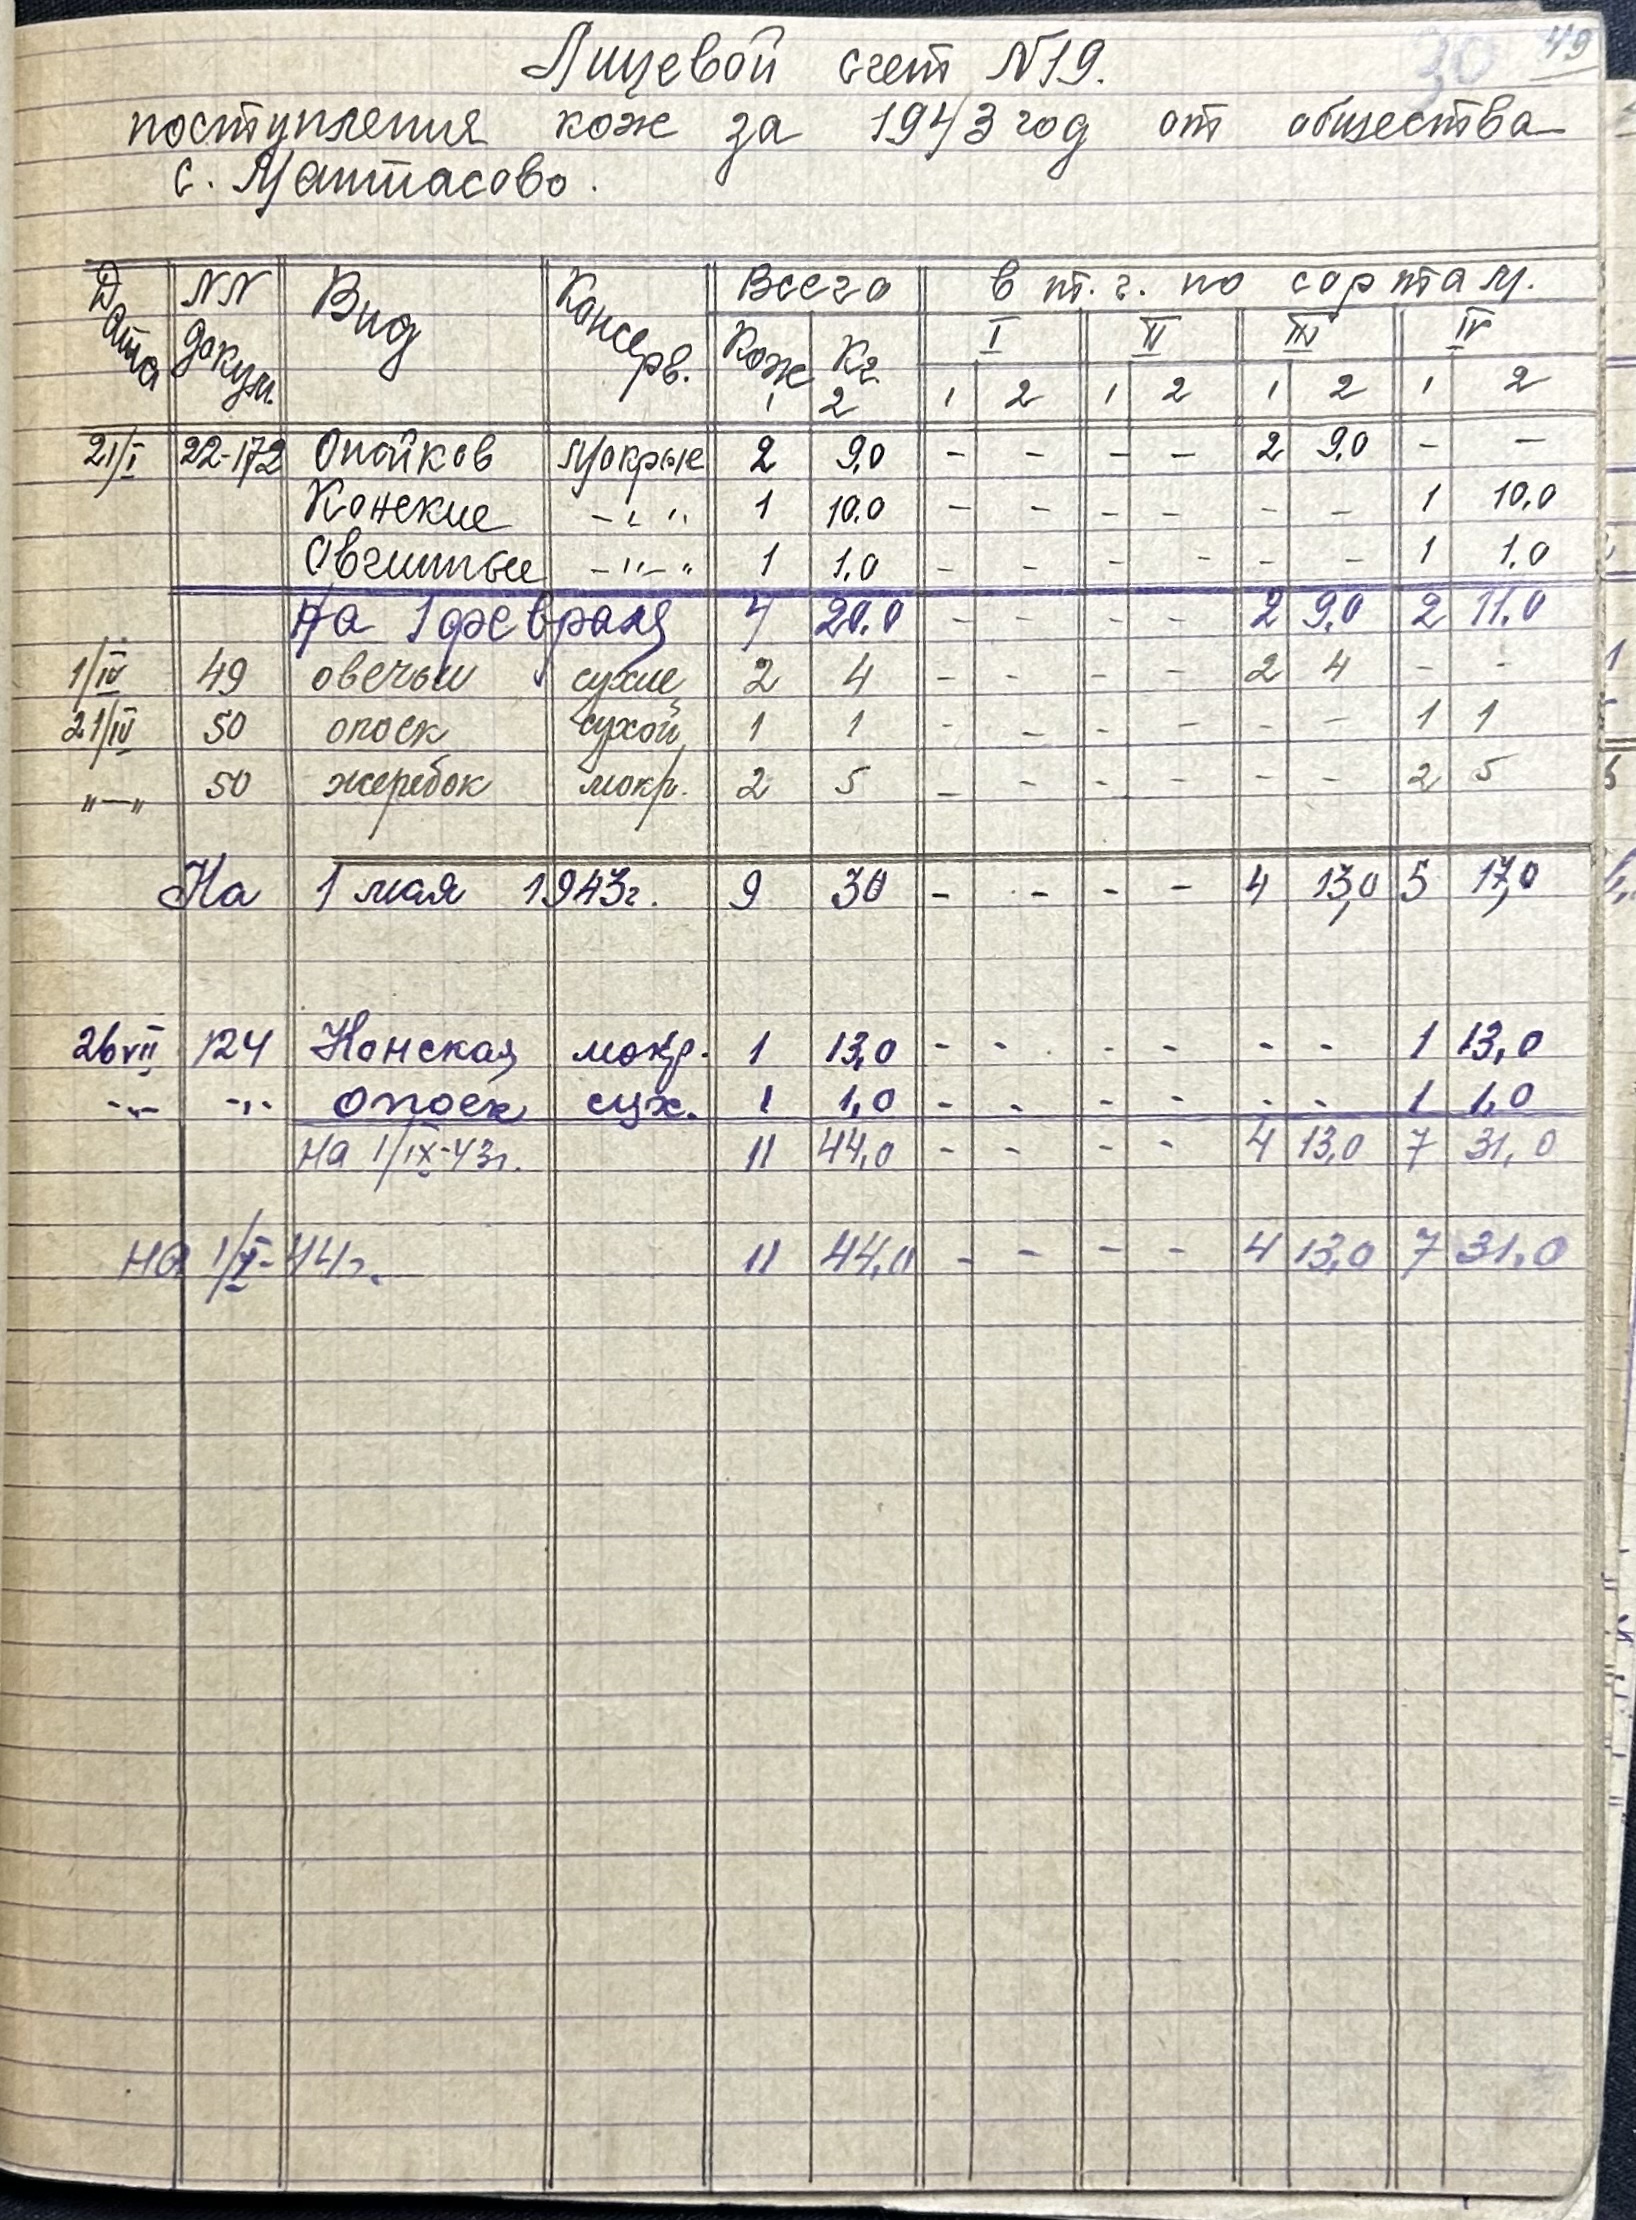 30 49
Лицевой счет N19.
поступления кож за 1943 год от общества
с. Мантасово.
Дата NN докум. Вид Консерв. Всего в т.ч. по сортам.
Кож Кг. I II III IV
1 2 1 2 1 2 1 2 1 2
21/I 22-172 Опойков мокрые 2 9,0 - - - - 2 9,0 - -
Конские -"-" 1 10.0 - - - - - - 1 10,0
Овчинные -"-" 1 1,0 - - - - - - 1 1,0
На 1 февраля 4 20.0 - - - - 2 9,0 2 11.0
1/IV 49 овечьи сухие 2 4 - - - - 2 4 - -
21/IV 50 опоек сухой 1 1 - - - - - - 1 1
"-" 50 жеребок мокр. 2 5 - - - - - 2 5
На 1 мая 1943г. 9 30 - - - - 4 13,0 5 17,0
26 VII 124 Конская мокр. 1 13,0 - - - - - - 1 13,0
-"- -"- опоек сух. 1 1,0 - - - - - - 1 1,0
на 1/IX-43г. 11 44,0 - - - - 4 13,0 7 31,0
на 1/I-44г. 11 44,0 - - - - 4 13,0 7 31,0